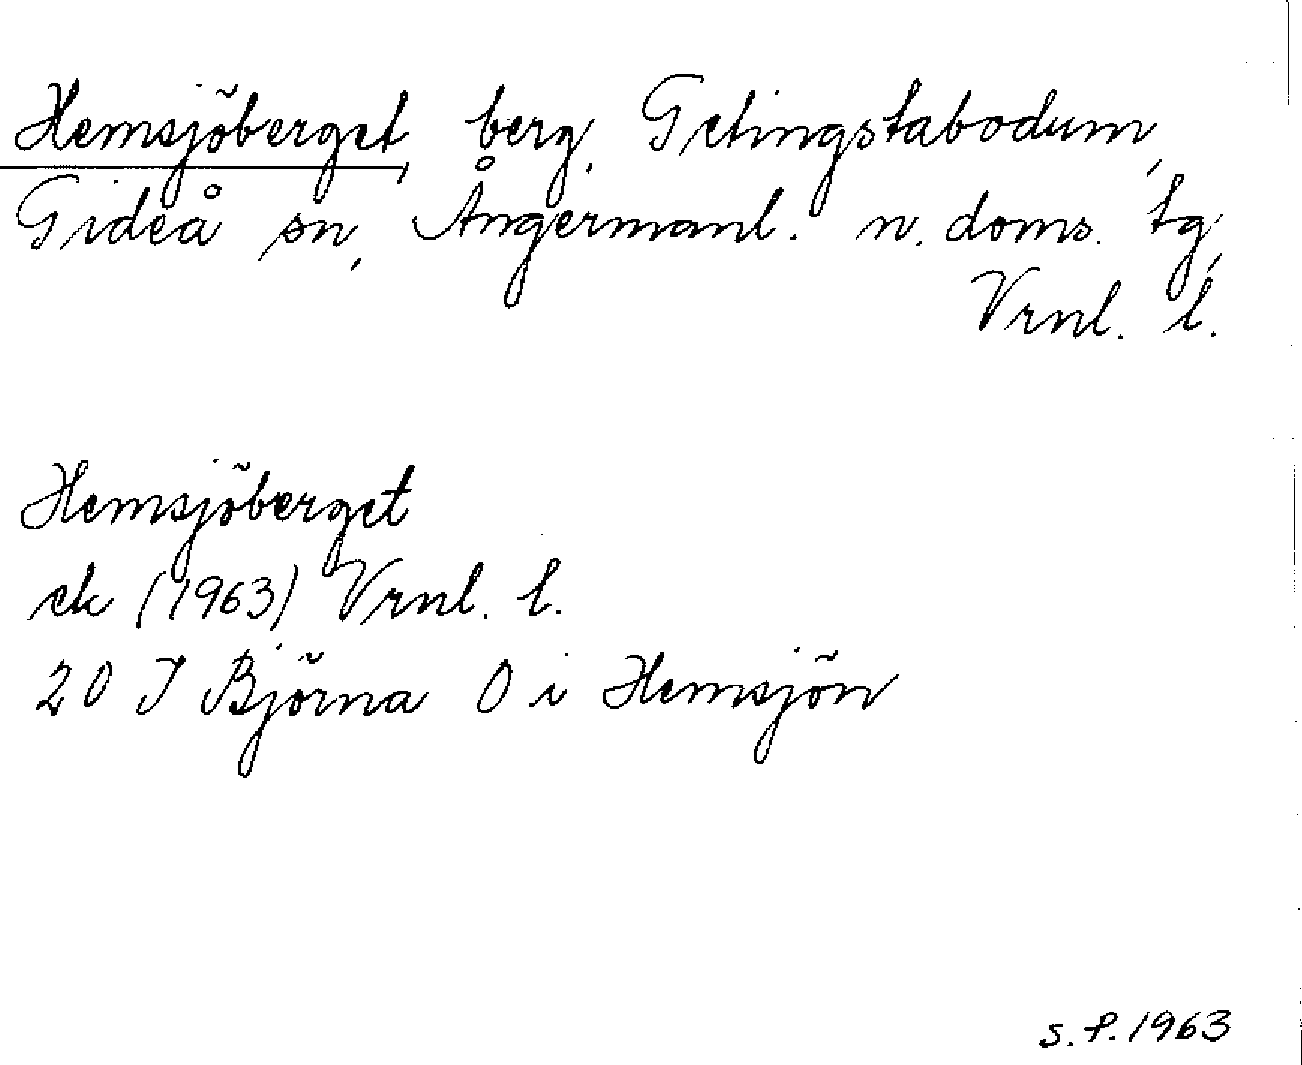 Hemsjöberget, berg, Getingstabodum,
Gideå sn, Ångermanl. n. doms. tg,
Vrnl. l.
Hemsjöberget
ek (1963) Vrnl. l.
20 I Björna O i Hemsjön
S.P.1963